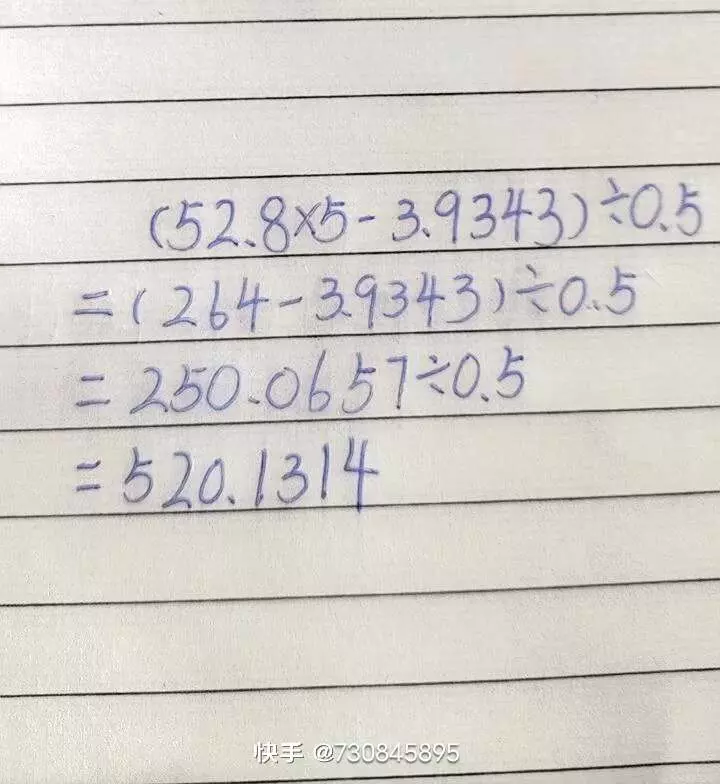 (52.8×5-3.9343)÷0.5
=(264-3.9343)÷0.5
=250.0657÷0.5
=520.1314
快手 @730845895